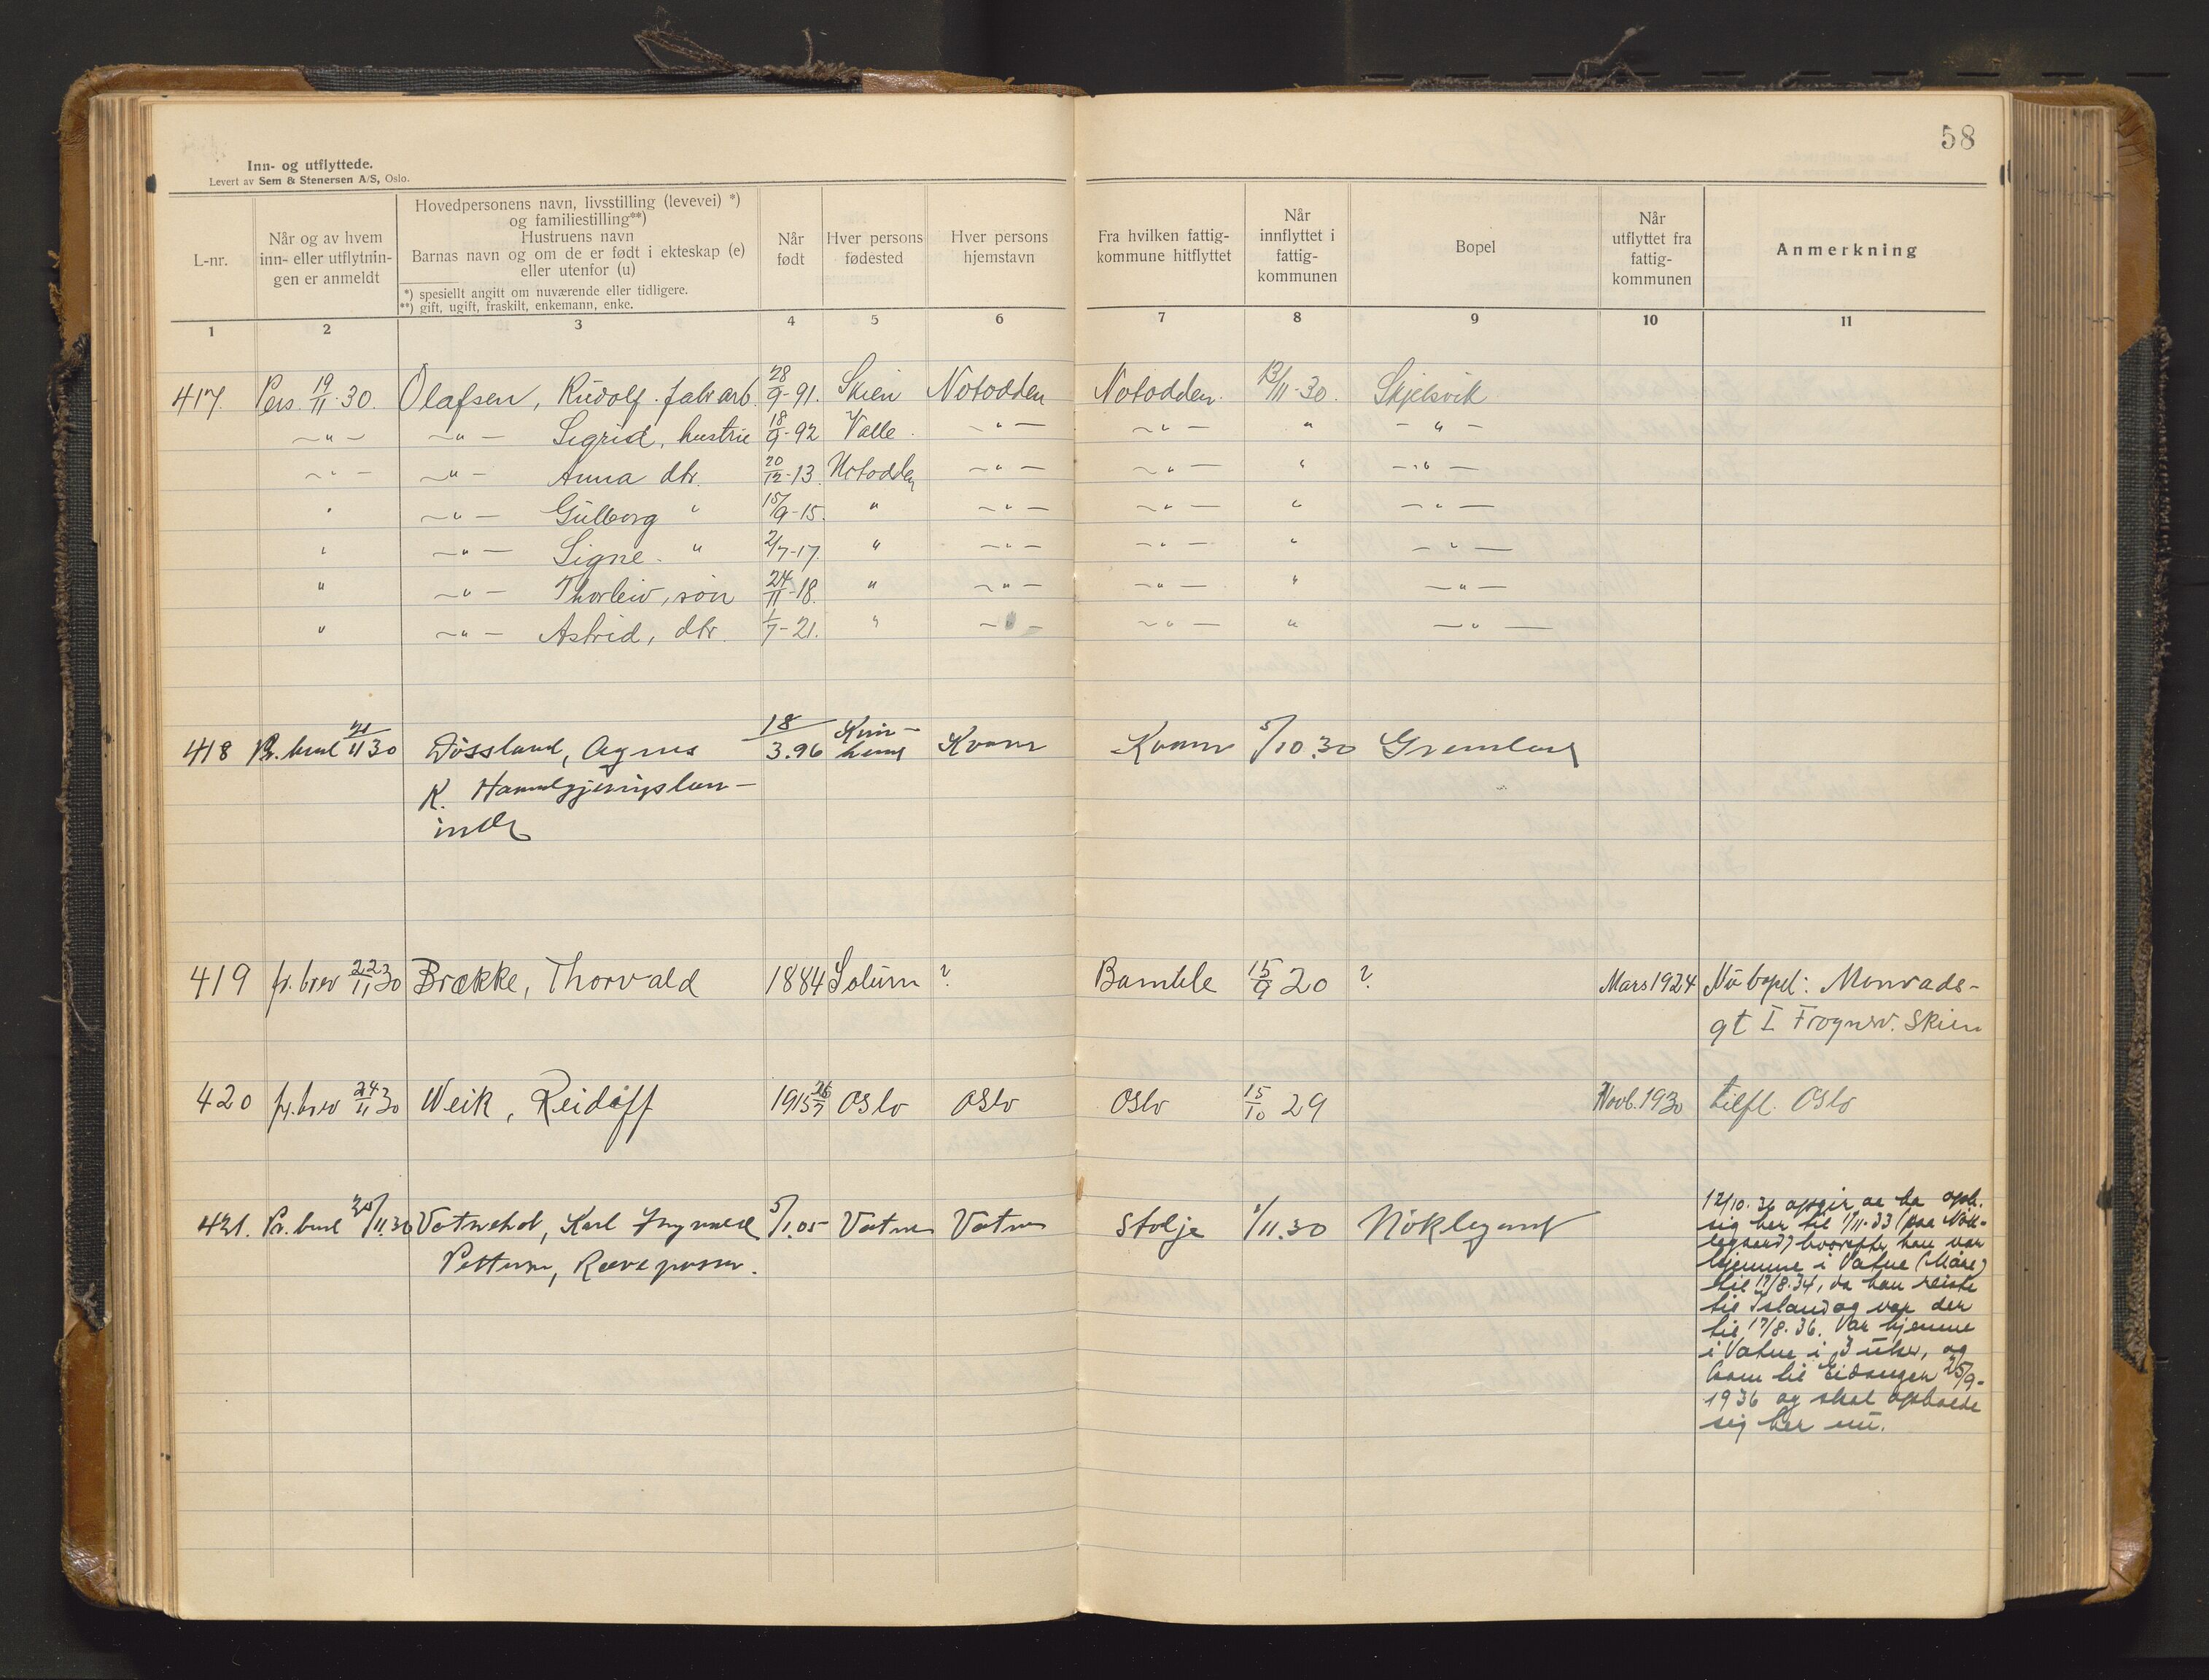 58
Inn- og utflyttede.
Levert av Sem & Stenersen A/S, Oslo.
L-nr.
Når og av hvem
inn- eller utflytnin-
gen er anmeldt
Hovedpersonens navn, livsstilling (levevei) *)
og familiestilling**)
Hustruens navn
Barnas navn og om de er født i ekteskap (e)
eller utenfor (u)
*) spesiellt angitt om nuværende eller tidligere.
**) gift, ugift, fraskilt, enkemann, enke.
Når
født
Hver persons
fødested
Hver persons
hjemstavn
Fra hvilken fattig-
kommune hitflyttet
Når
innflyttet i
fattig-
kommunen
Bopel
Når
utflyttet fra
fattig-
kommunen
Anmerkning
1 2 3 4 5 6 7 8 9 10 11
417. Pers. 19/11-30. Olafsen, Rudolf. fabr.arb. 28/9-91. Skien Notodden Notodden. 13/11-30. Skjelsvik
-"- -"- Sigrid, hustru 18/9-92 Valle. -"- -"- " -"-
-"- -"- Anna dtr. 20/12-13. Notodden -"- -"- " -"-
" -"- Gulborg " 15/9-15. " -"- -"- " -"-
" -"- Signe. " 2/7-17. " -"- -"- " -"-
" -"- Thorleiv, søn 24/11-18. " -"- -"- " -"-
" -"- Astrid, dtr. 1/7-21. " -"- -"- " -"-
418 21/11 30 Døssland, Agnes 18/3.96 Kvin- Kvam Kvam 5/10.30 Grenland
K. Handgjerningslær-
inde
419 pr. brev 22/11 30 Brække, Thorvald 1884 Solum ? Bamble 15/9 20 ? Mars 1924 Nu bopel: Monrads-
gt I Frognerv. Skien
420 pr. brev 24/11 30 Weik, Reidolff 1915 26/7 Oslo Oslo Oslo 15/10 29 Novb. 1930 tilfl. Oslo
421. /11.30 Vatnehol, Karl Ingvald 5/1.05 Vatne Vatne Stolje 1/11.30 Nøklegard
Pettersen, Rævepasser.
12/10.36 opgir at ha oph.
sig her til 1/11-33 (paa Nøk-
legaard) hvorefter han var
hjemme i Vatne (Møre)
til 17/8.34, da han reiste
til Island og var der
til 17/8.36. Var hjemme
i Vatne i 3 uker, og
kom til Eidanger 25/9-
1936 og skal opholde
sig her nu.